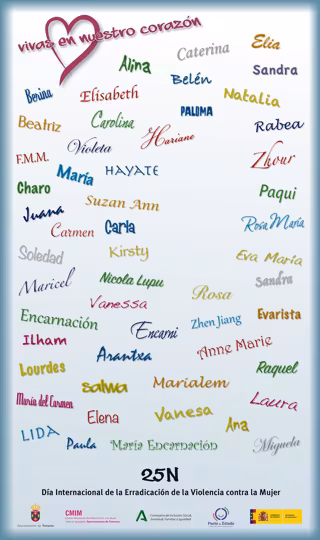 vivas en nuestro corazón
Alina
Caterina
Elia
Sandra
Belén
Elisabeth
Natalia
PALOMA
Beatriz
Carolina
Rabea
Violeta
Hariane
F.M.M.
Zhour
María
HAYATE
Charo
Paqui
Suzan Ann
Juana
Carmen
Carla
Rosa María
Soledad
Kirsty
Eva María
Maricel
Nicola Lupu
Sandra
Rosa
Vanessa
Encarnación
Encarni
Zhen Jiang
Evarista
Ilham
Arantxa
Anne Marie
Lourdes
Raquel
Salwa
Marialem
María del Carmen
Laura
Elena
Vanesa
Ana
LIDA
Paula
María Encarnación
Miguela
25N
Día Internacional de la Erradicación de la Violencia contra la Mujer
CMIM